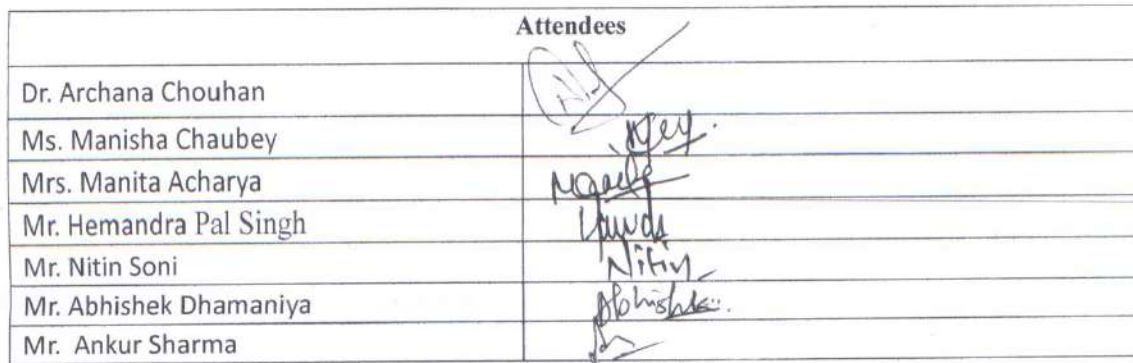 Attendees
Dr. Archana Chouhan
Ms. Manisha Chaubey
Mrs. Manita Acharya
Mr. Hemandra Pal Singh
Mr. Nitin Soni Nitin
Mr. Abhishek Dhamaniya Abhishek
Mr. Ankur Sharma